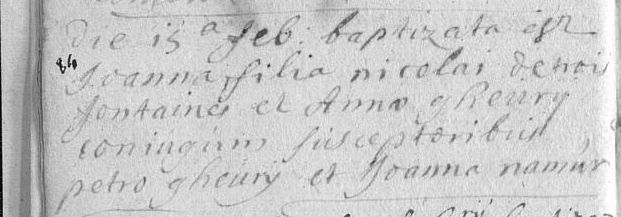 die 15a feb: baptizata est
86
Joanna filia nicolai detrois
fontaines et Annæ gheury
coniugum susceptoribus
petro gheury et Joanna namur